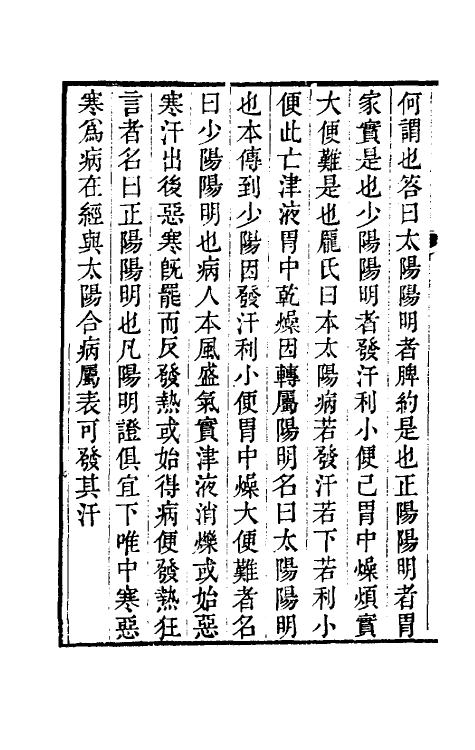 何謂也答曰太陽陽明者脾約是也正陽陽明者胃
家實是也少陽陽明者發汗利小便已胃中燥煩實
大便難是也龐氏曰本太陽病若發汗若下若利小
便此亡津液胃中乾燥因轉屬陽明名曰太陽陽明
也本傳到少陽因發汗利小便胃中燥大便難者名
曰少陽陽明也病人本風盛氣實津液消爍或始惡
寒汗出後惡寒旣罷而反發熱或始得病便發熱狂
言者名曰正陽陽明也凡陽明證俱宜下唯中寒惡
寒爲病在經與太陽合病屬表可發其汗